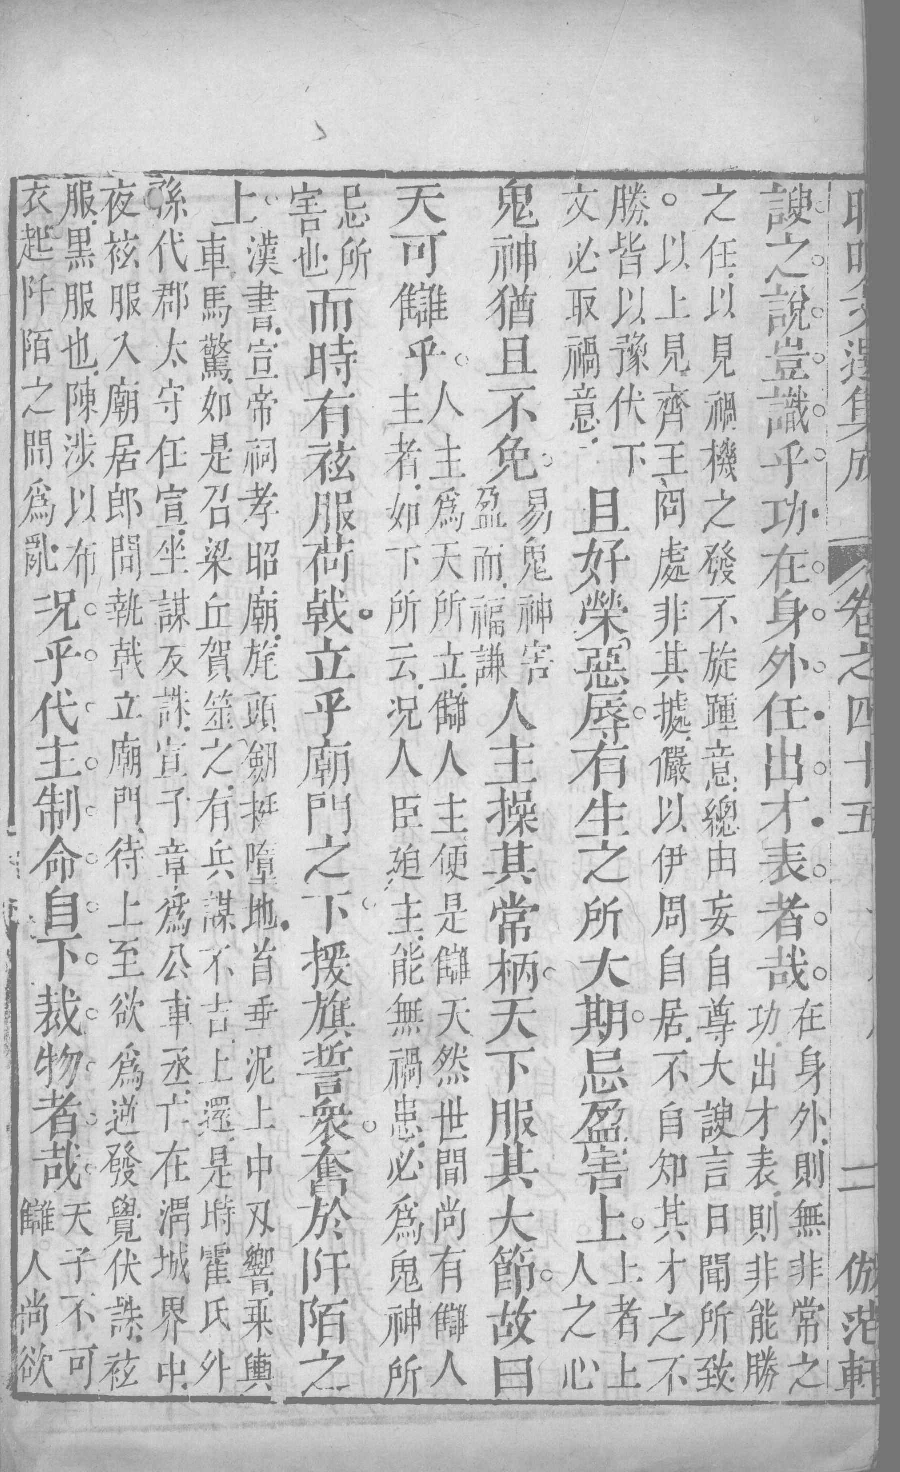 昭明文選集成 卷之四十五 二 倣范軒
諛之說豈識乎功在身外任出才表者哉在身外則無非常之
功出才表則非能勝
之任以見禍機之發不旋踵意總由妄自尊大諛言日聞所致
以上見齊王冏處非其據儼以伊周自居不自知其才之不
勝皆以豫伏下
文必取禍意
且好榮惡辱有生之所大期忌盈害上上者上
人之心
鬼神猶且不免易鬼神害
盈而福謙
人主操其常柄天下服其大節故曰
天可讎乎人主為天所立讎人主便是讎天然世間尚有讎人
主者如下所云況人臣廹主能無禍患必為鬼神所
忌所
害也
而時有袨服荷戟立乎廟門之下援旗誓衆奮於阡陌之
上漢書宣帝祠孝昭廟旄頭劒挺墮地首垂泥上中刄響乘輿
車馬驚如是召梁丘賀筮之有兵謀不吉上還是時霍氏外
孫代郡太守任宣坐謀反誅宣子章為公車丞亡在渭城界中
夜袨服入廟居郎間執戟立廟門待上至欲為逆發覺伏誅袨
服黑服也陳涉以布
衣起阡陌之間為亂
況乎代主制命自下裁物者哉天子不可
讎人尚欲